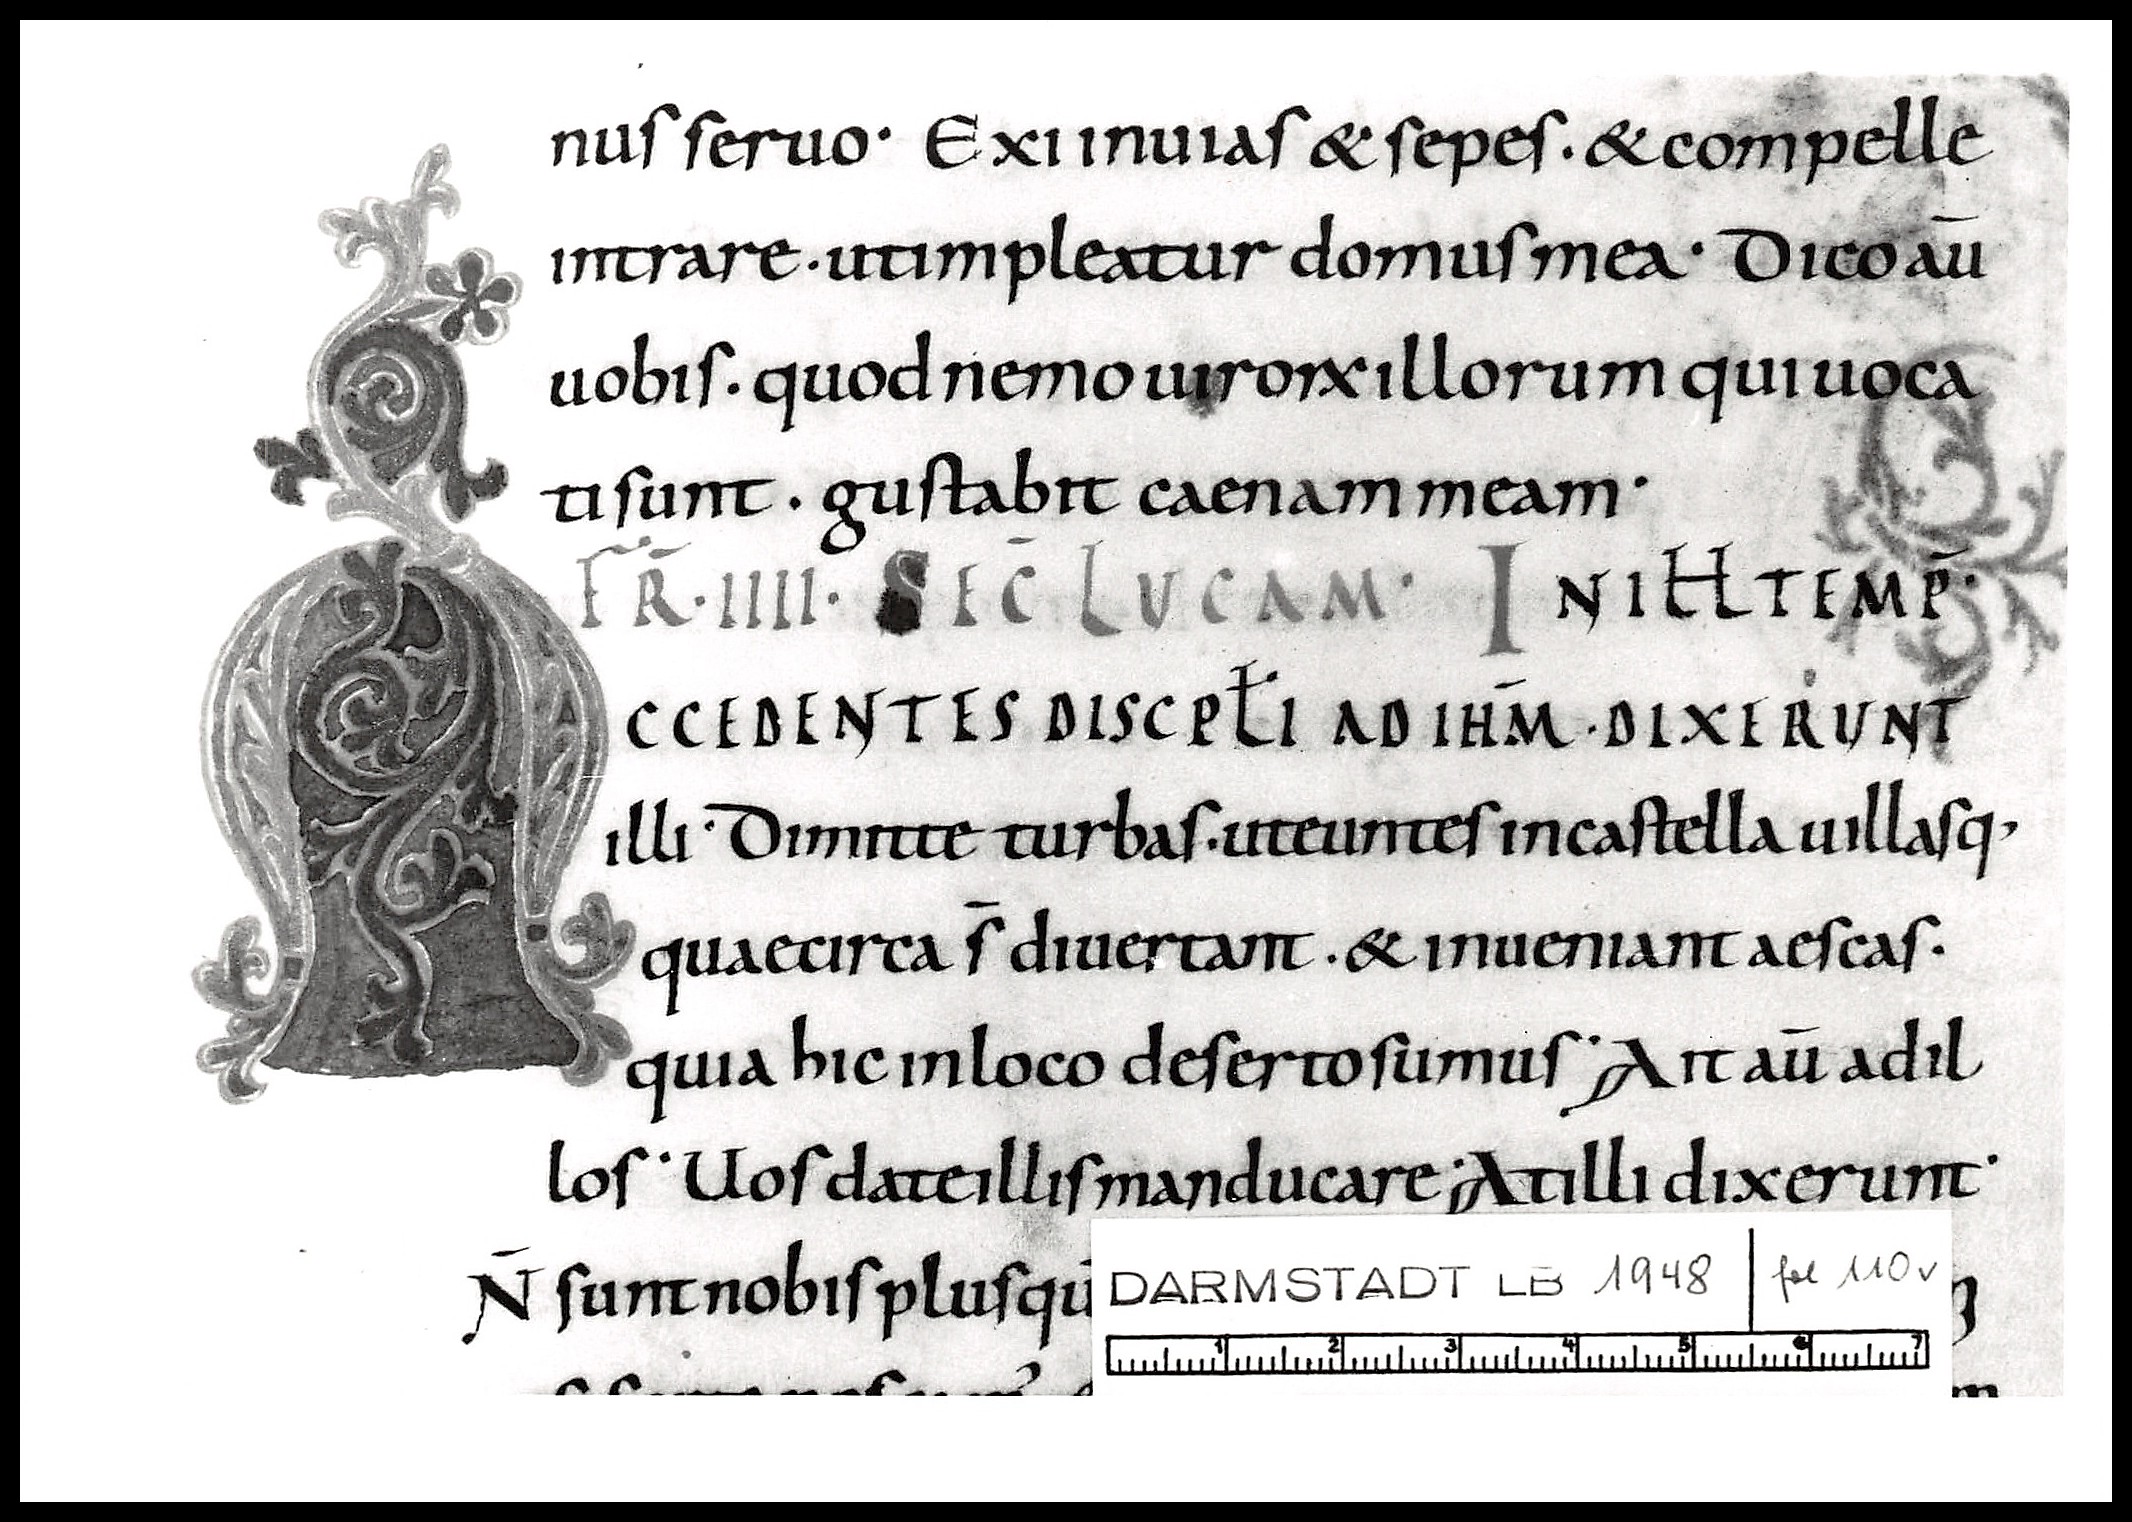 nus seruo· Exi inuias & sepes. & compelle
intrare. utimpleatur domus mea· Dico aū
uobis. quod nemo uirorx illorum qui uoca
ti sunt. gustabit caenam meam·
FR̄·IIII· SEC̄ LUCAM· IN ILL TEMP̄·
ACCEDENTES DISCPłI AD IHM̄·DIXERUNT
illi· Dimitte turbas. uteuntes incastella uillasq,
quaecirca s̄ diuertant. & inueniant aescas.
quia hic inloco deserto sumus· Ait aū adil
los· Uos date illis manducare· Atilli dixerunt·
N̄ sunt nobis plus qū
DARMSTADT LB 1948 fol 110v
1 2 3 4 5 6 7